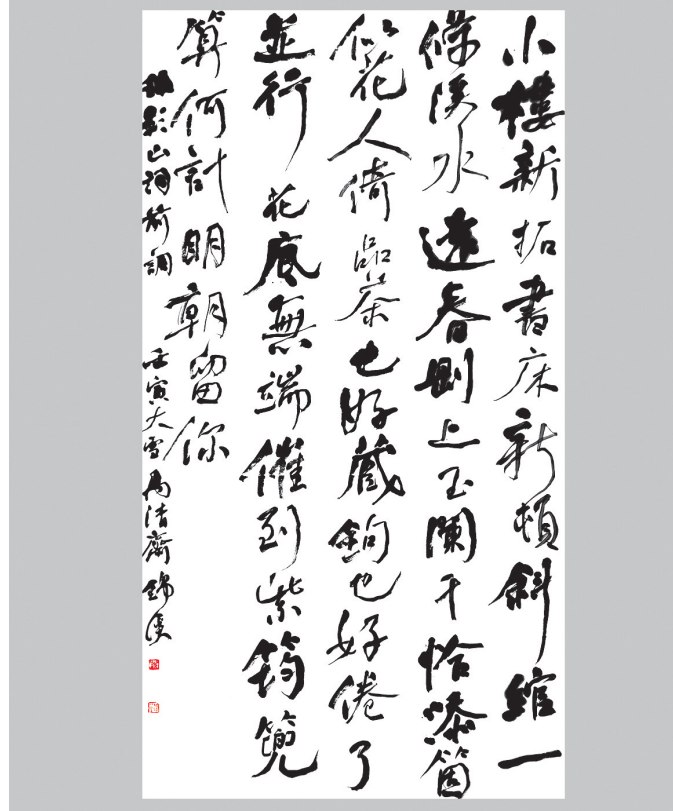 小樓新拓書床新頓斜綰一
條溪水遶春剛上玉闌干恰添箇
似花人倚品茶也好藏鉤也好倦了
並行花底無端催到紫筠篼
算何計明朝留你
彭山詞前調壬寅大雪禹清齋錦溪